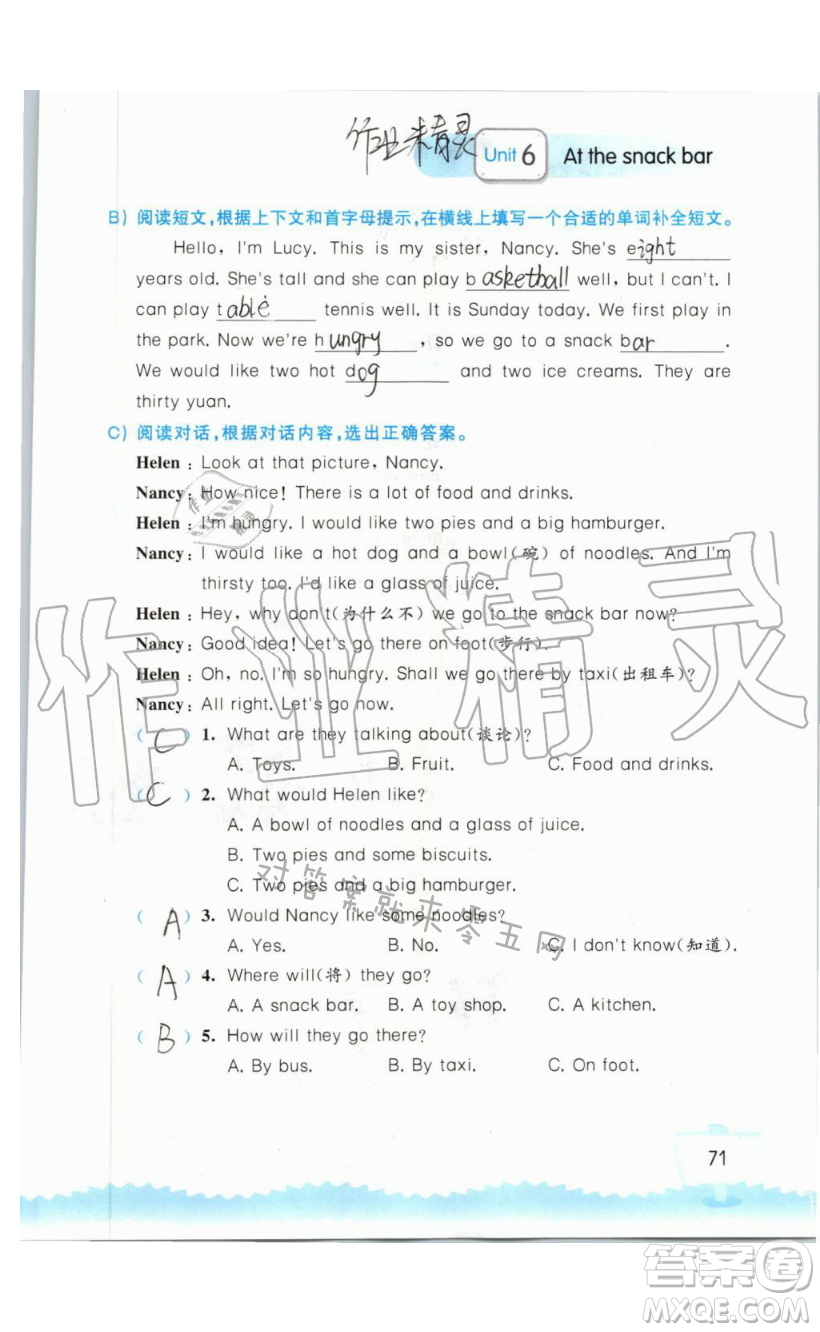 作业来精灵
Unit 6 At the snack bar
B) 阅读短文,根据上下文和首字母提示,在横线上填写一个合适的单词补全短文。
Hello, I'm Lucy. This is my sister, Nancy. She's eight
years old. She's tall and she can play basketball well, but I can't. I
can play table tennis well. It is Sunday today. We first play in
the park. Now we're hungry, so we go to a snack bar.
We would like two hot dog and two ice creams. They are
thirty yuan.
C) 阅读对话,根据对话内容,选出正确答案。
Helen: Look at that picture, Nancy.
Nancy: How nice! There is a lot of food and drinks.
Helen: I'm hungry. I would like two pies and a big hamburger.
Nancy: I would like a hot dog and a bowl(碗) of noodles. And I'm
thirsty too. I'd like a glass of juice.
Helen: Hey, why don't(为什么不) we go to the snack bar now?
Nancy: Good idea! Let's go there on foot(步行).
Helen: Oh, no. I'm so hungry. Shall we go there by taxi(出租车)?
Nancy: All right. Let's go now.
( C ) 1. What are they talking about(谈论)?
A. Toys. B. Fruit. C. Food and drinks.
( C ) 2. What would Helen like?
A. A bowl of noodles and a glass of juice.
B. Two pies and some biscuits.
C. Two pies and a big hamburger.
( A ) 3. Would Nancy like some noodles?
A. Yes. B. No. C. I don't know(知道).
( A ) 4. Where will(将) they go?
A. A snack bar. B. A toy shop. C. A kitchen.
( B ) 5. How will they go there?
A. By bus. B. By taxi. C. On foot.
作业精灵
对答案就来零五网
71
答案卷
MXQE.COM